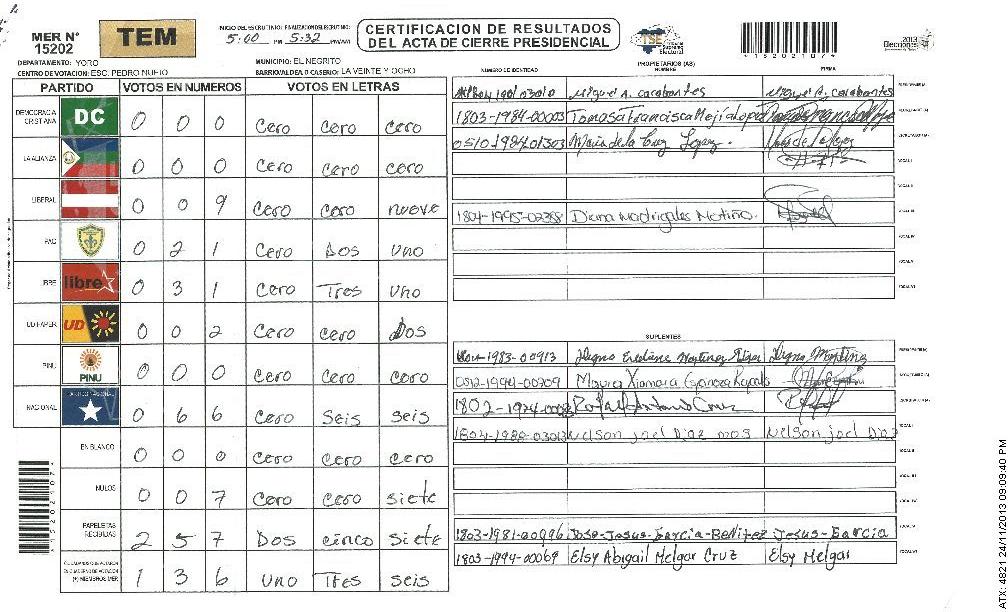 MER N°
15202
TEM
INICIO DEL ESCRUTINIO: FINALIZACION DEL ESCRUTINIO:
5:00 PM 5:32 PM/AM
CERTIFICACION DE RESULTADOS
DEL ACTA DE CIERRE PRESIDENCIAL
TSE
Tribunal
Supremo
Electoral
152021074
2013
Elecciones
DEPARTAMENTO: YORO
MUNICIPIO: EL NEGRITO
CENTRO DE VOTACION: ESC. PEDRO NUFIO
BARRIO/ALDEA O CASERIO: LA VEINTE Y OCHO
PARTIDO VOTOS EN NUMEROS VOTOS EN LETRAS
DEMOCRACIA CRISTIANA DC 0 0 0 Cero Cero Cero
LA ALIANZA 0 0 0 Cero Cero Cero
LIBERAL 0 0 9 Cero Cero nueve
PAC 0 2 1 Cero Dos uno
LIBRE libre 0 3 1 Cero Tres uno
UD FAPER UD 0 0 2 Cero Cero Dos
PINU PINU 0 0 0 Cero Cero Cero
NACIONAL 0 6 6 Cero Seis seis
EN BLANCO 0 0 0 Cero Cero Cero
NULOS 0 0 7 Cero Cero siete
PAPELETAS RECIBIDAS 2 5 7 Dos cinco siete
(+) MIEMBROS MER 1 3 6 uno Tres seis
152021074
PROPIETARIOS (AS)
NUMERO DE IDENTIDAD NOMBRE FIRMA
Miguel A. carabantes Miguel A. carabantes
1803-1984-00003 Tomasa Francisca Mejia Lopez
0510-1984-01303 Maria de la Cruz Lopez.
1804-1995-02388 Diana Madrigales Motiño.
SUPLENTES
1804-1983-00913 Digna Martinez
0512-1994-00709
1802-1974- Rafael Antonio Cruz
Nelson joel Diaz mos Nelson joel Diaz
1803-1981-00096 Jose-Jesus-Garcia-Benitez Jesus-Garcia
1803-1994-00069 Elsy Abigail Melgar Cruz Elsy Melgar
ATX: 4821 24/11/2013 09:09:40 PM